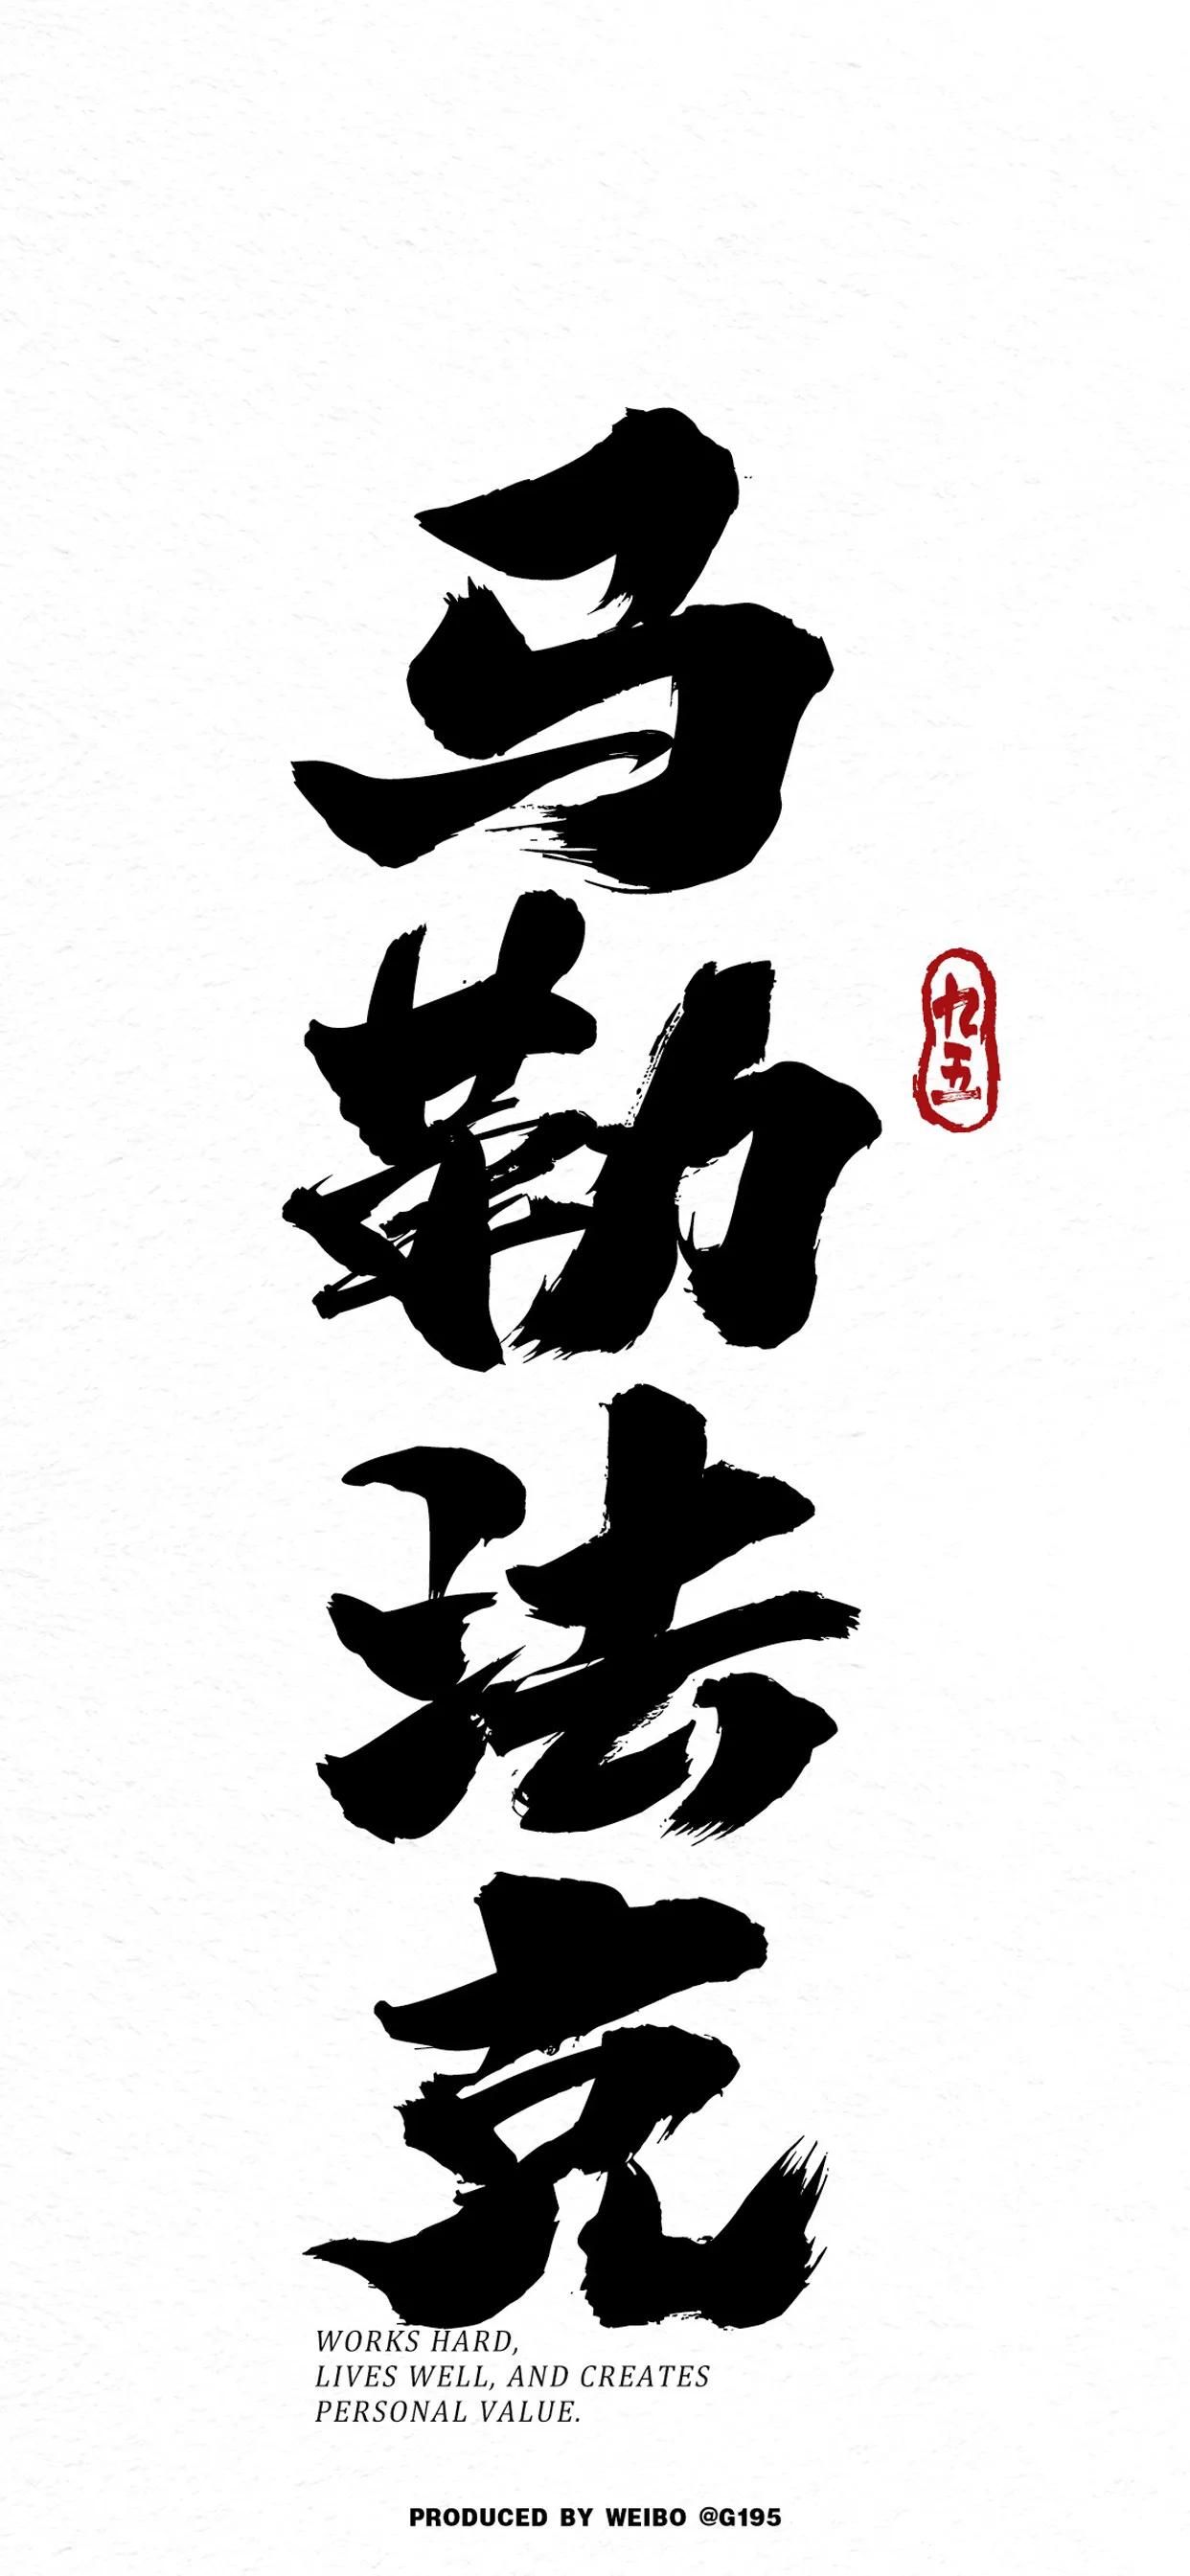 马勒法克
九五
WORKS HARD,
LIVES WELL, AND CREATES
PERSONAL VALUE.
PRODUCED BY WEIBO @G195